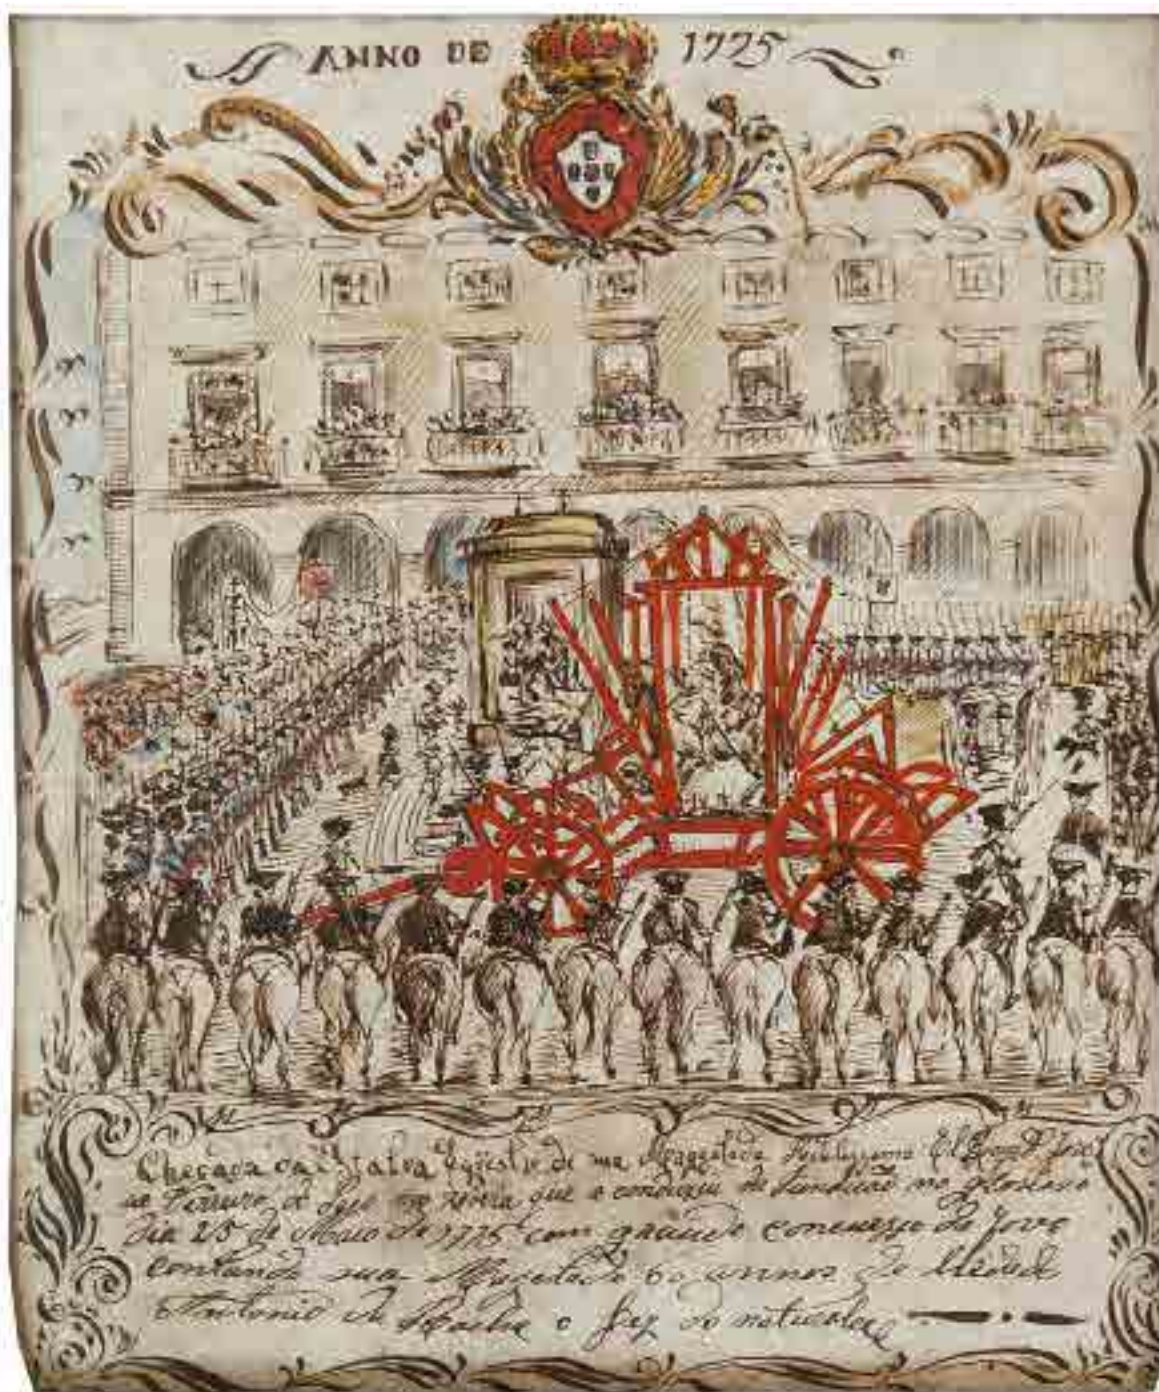 ANNO DE 1775
Chegada da Estatua Equestre de sua Magestade Fidelissima El Rey D. José
ao Terreiro do Paço na Zorra que a conduziu da Fundição no glorioso
dia 25 de Maio de 1775 com grande concurso de Povo
contando sua Magestade 60 annos de
Antonio da Rocha o fez do natural